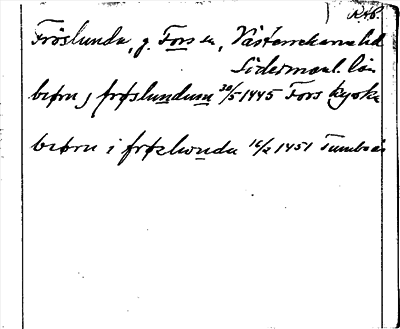 RAP.
Fröslunda, g. Fors sn, Västerrekarne hd
Södermanl. län
biørn j frøslundum 30/5 1445 Fors kyrka
biørn i frøslunda 16/2 1451 Tumbo